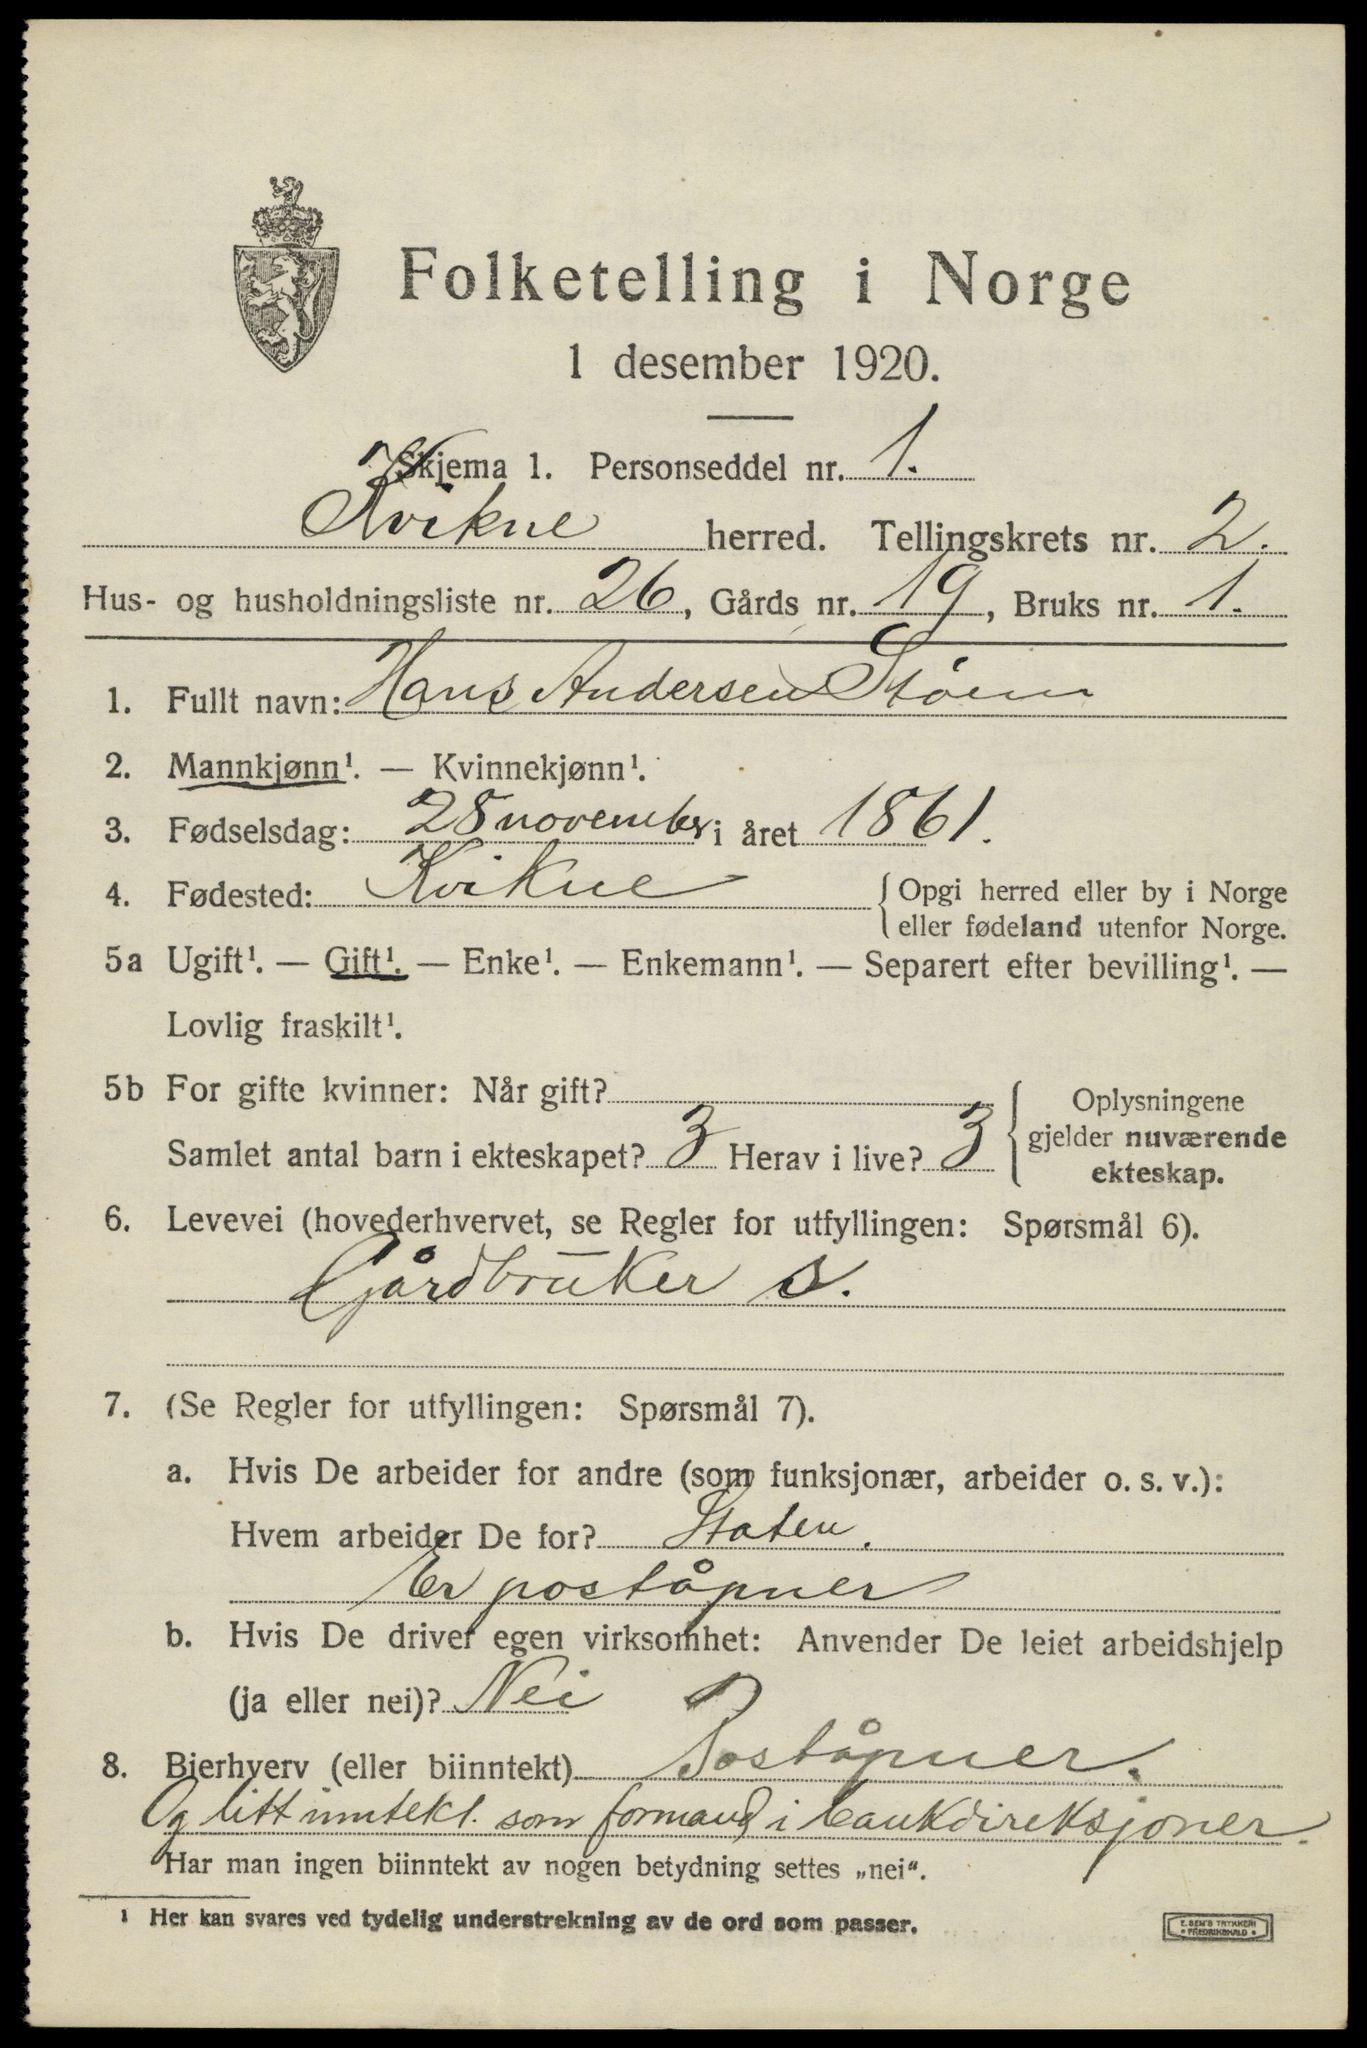 Folketelling i Norge
1 desember 1920.
Skjema 1. Personseddel nr. 1.
Kvikne herred. Tellingskrets nr. 2.
Hus- og husholdningsliste nr. 26, Gårds nr. 19, Bruks nr. 1.
1. Fullt navn: Hans Andersen Støen
2. Mannkjønn¹. — Kvinnekjønn¹.
3. Fødselsdag: 28 november i året 1861.
4. Fødested: Kvikne { Opgi herred eller by i Norge
eller fødeland utenfor Norge.
5a Ugift¹. — Gift¹. — Enke¹. — Enkemann¹. — Separert efter bevilling¹. —
Lovlig fraskilt¹.
5b For gifte kvinner: Når gift?
Samlet antal barn i ekteskapet? 3 Herav i live? 3
Oplysningene
gjelder nuværende
ekteskap.
6. Levevei (hovederhvervet, se Regler for utfyllingen: Spørsmål 6).
Gårdbruker s.
7. (Se Regler for utfyllingen: Spørsmål 7).
a. Hvis De arbeider for andre (som funksjonær, arbeider o. s. v.):
Hvem arbeider De for? Staten.
Er poståpner
b. Hvis De driver egen virksomhet: Anvender De leiet arbeidshjelp
(ja eller nei)? Nei
8. Bierhverv (eller biinntekt) Poståpner.
Og litt inntekt. som formand i bankdireksjoner.
Har man ingen biinntekt av nogen betydning settes „nei“.
¹ Her kan svares ved tydelig understrekning av de ord som passer.
E. SEM'S TRYKKERI
FREDRIKSHALD